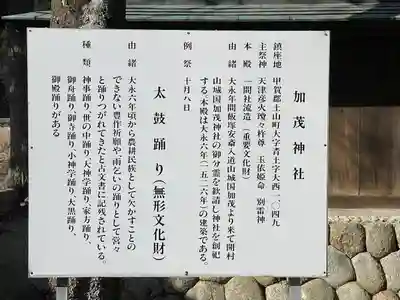 加茂神社
鎮座地 甲賀郡土山町大字青土字大西一〇四九
主祭神 天津彦火瓊々杵尊 玉依姫命 別雷神
本殿 一間社流造(重要文化財)
由緒 大永年間飯塚安斎入道山城国加茂より来て開村
山城国加茂神社の御分霊を勧請し神社を創祀
する。本殿は大永六年(一五二六年)の建築である。
例祭 十月八日
太鼓踊り(無形文化財)
由緒 大永六年頃から農耕民族として欠かすことの
できない豊作祈願や、雨乞いの踊りとして営々
と踊りつがれてきたと古文書に記されている。
種類 神事踊り、世の中踊り、天神学踊り、家方踊り、
御舟踊り、御寺踊り、小神学踊り、大黒踊り、
御殿踊りがある